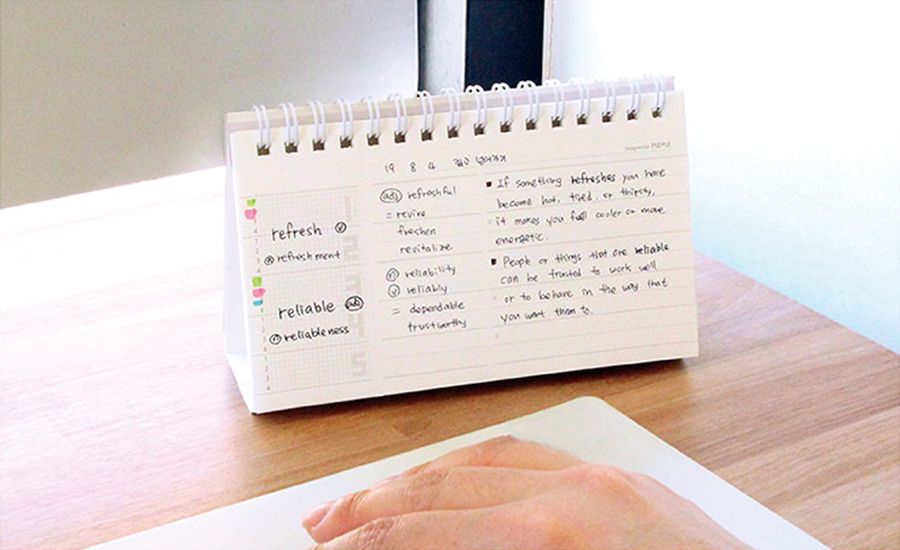 19 8 4
refresh ⓥ
ⓝ refreshment
reliable (adj)
ⓝ reliableness
(adj) refreshful
= revive
freshen
revitalize
ⓝ reliability
ⓥ reliably
= dependable
trustworthy
▪ If something refreshes you have
become hot, tired, or thirsty,
it makes you feel cooler or more
energetic.
▪ People or things that are reliable
can be trusted to work well
or to behave in the way that
you want them to.